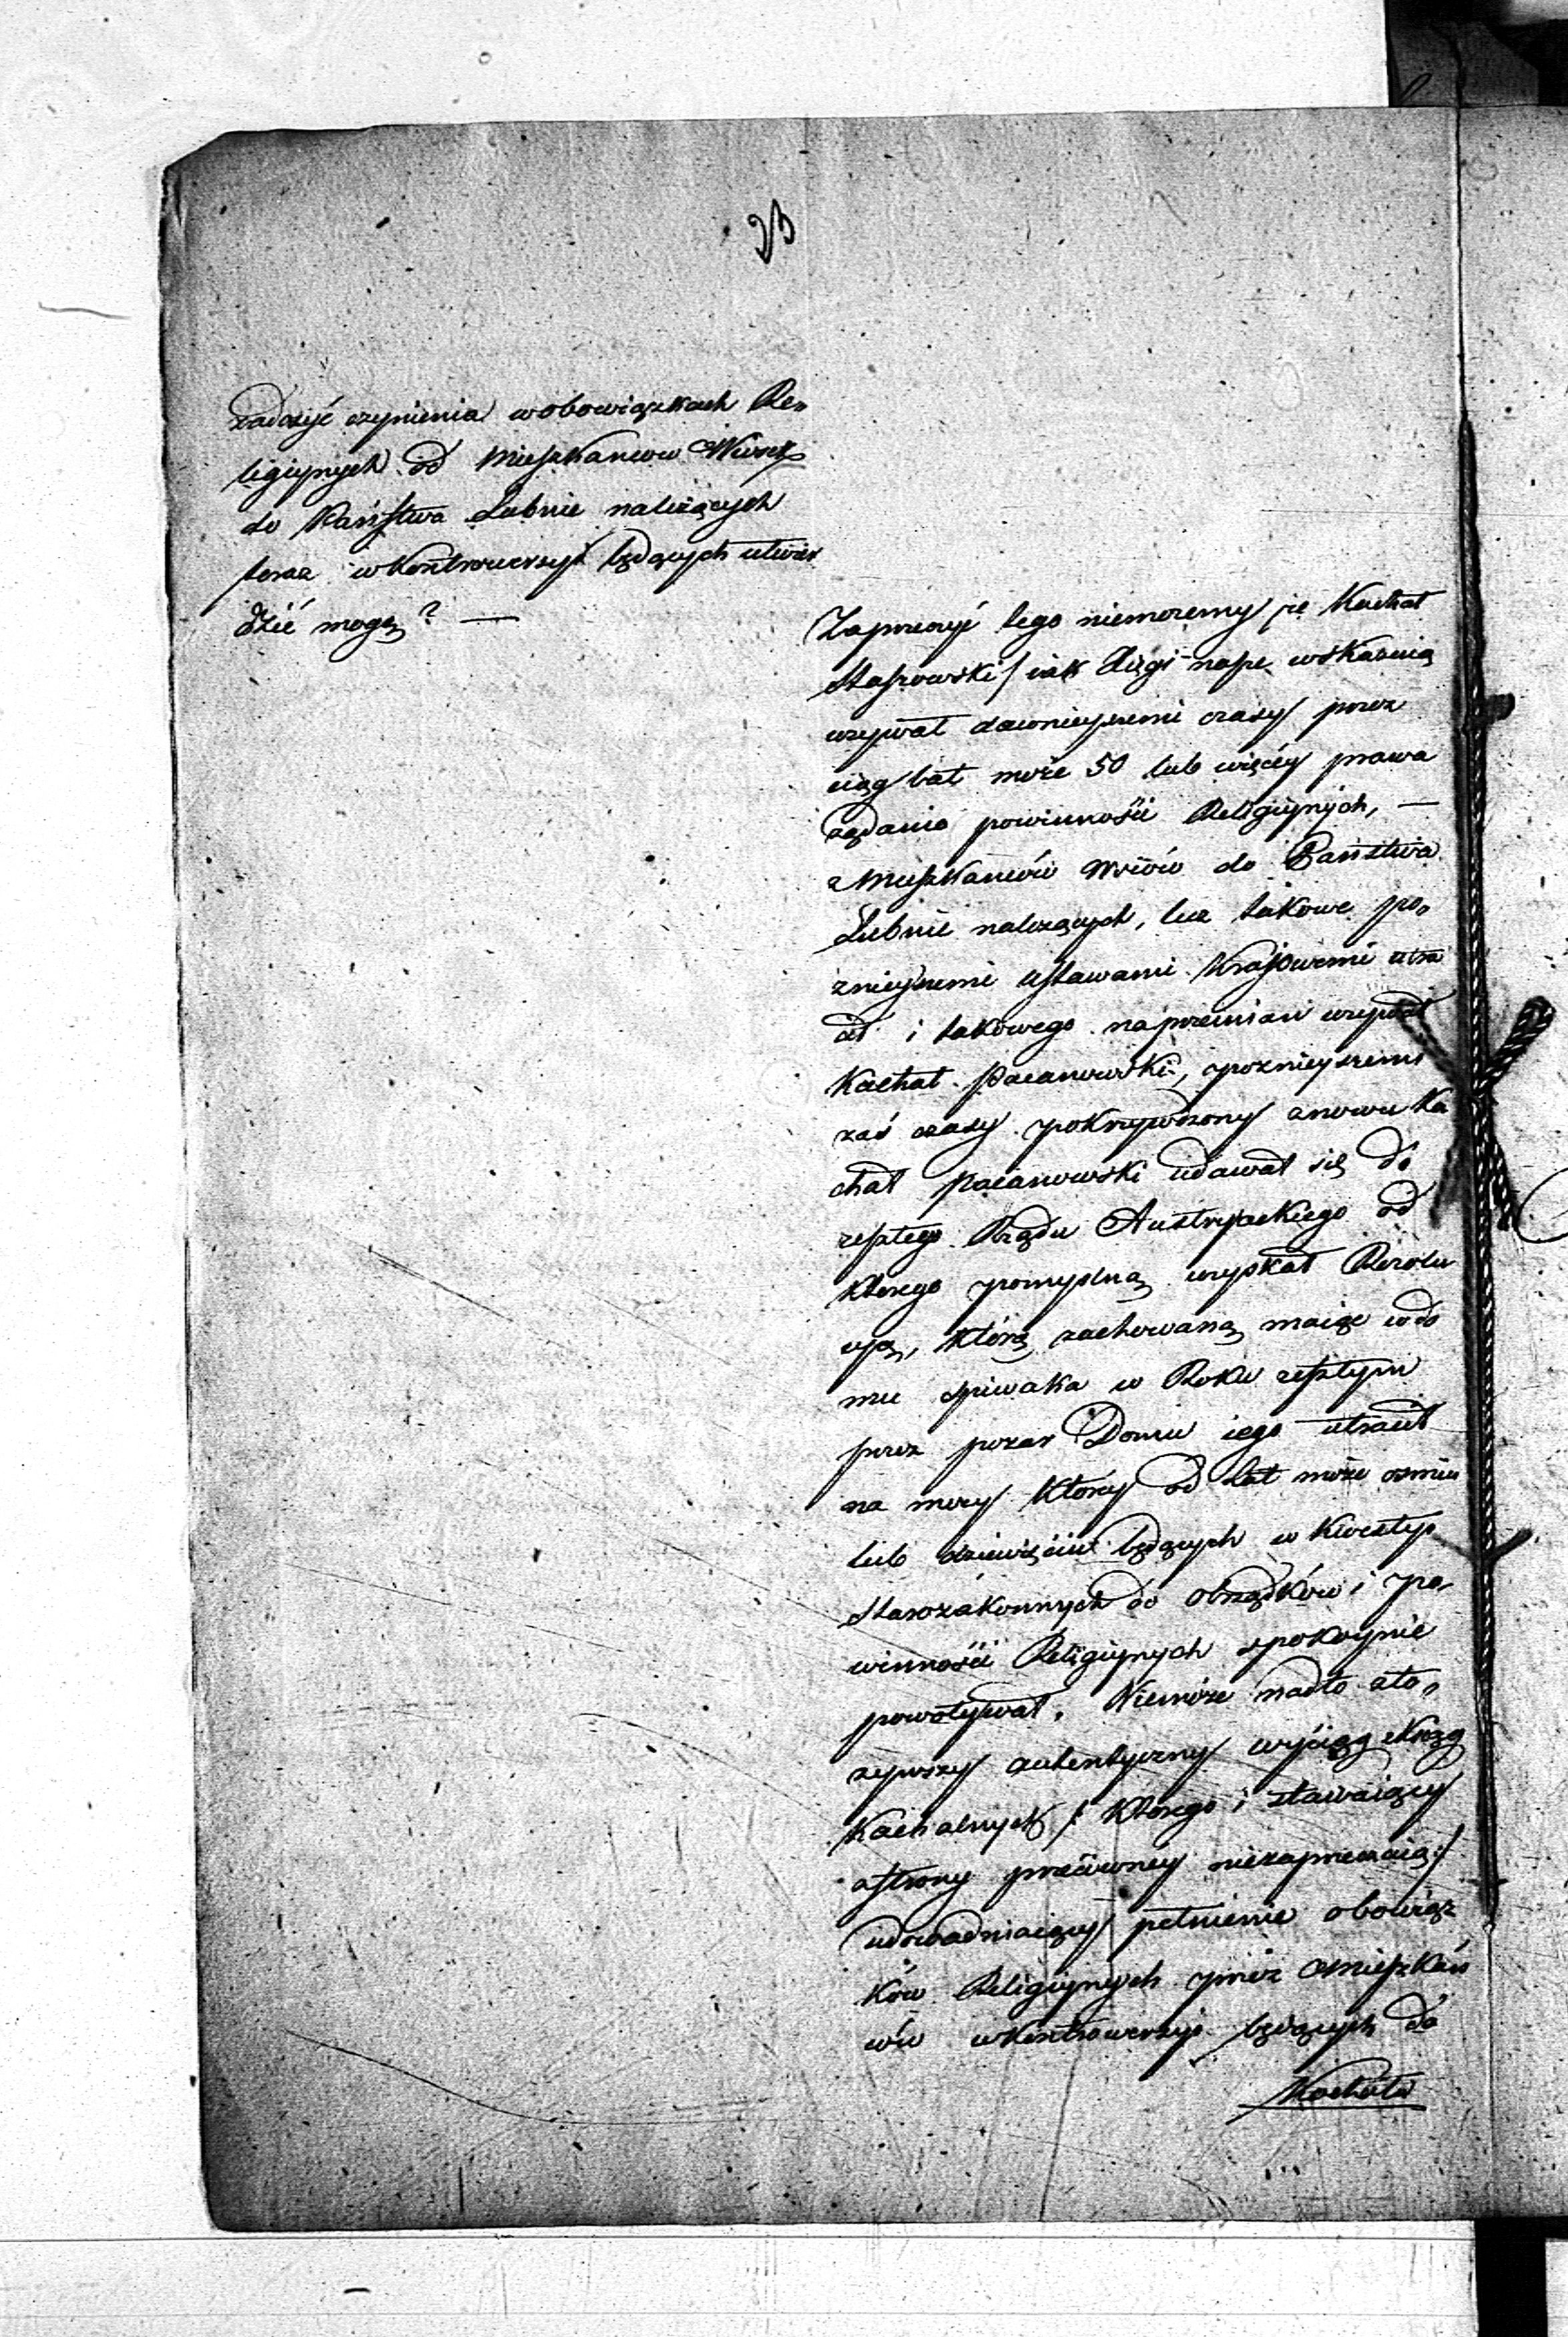 23
zadosyć czynienia w obowiązkach Re„
ligiynych od Mieszkancow Wiosek
do Państwa Łubnie należących
teraz w kontrowersyi będących utwier
dzić mogą? —
Zaprzeczyć tego niemożemy że Kachał
Staszowski jak xięgi nasze wskazuią
używał dawnieyszemi czasy przez
ciąg lat może 50 lub więcéy prawa
żądania powinności Religiynych, —
z Mieszkańców Wsiów do Państwa
Łubnie należących, lecz takowe po„
znieyszemi Ustawami Kraiowemi utra
cił i takowego naprzemian używał
Kachał Pacanowski, poznieyszemi
zaś czasy pokrzywdzony znowu Ka
chał Pacanowski udawał się do
zeszłego Rządu Austryackiego od
którego pomyślną uzyskał Rezolu
cyą, którą zachowaną maiąc w do
mu Spiewaka w Roku zeszłym
przez pożar Domu iego utracił
na mocy który od lat może osmiu
lub dziewięciu będących w kwestyi
Starozakonnych do obrządków i po„
winności Religiynych spokoynie
powoływał. Niemniey nadto zło„
żywszy autentyczny wyciąg Xiąg
Kachalnych /: którego i stawaiący
z strony przeciwney niezaprzeczaią :/
udowadniaiący pełnienie obowiąz
ków Religiynych przez Mieszkań
ców w kontrowersyi będących do
Kachału